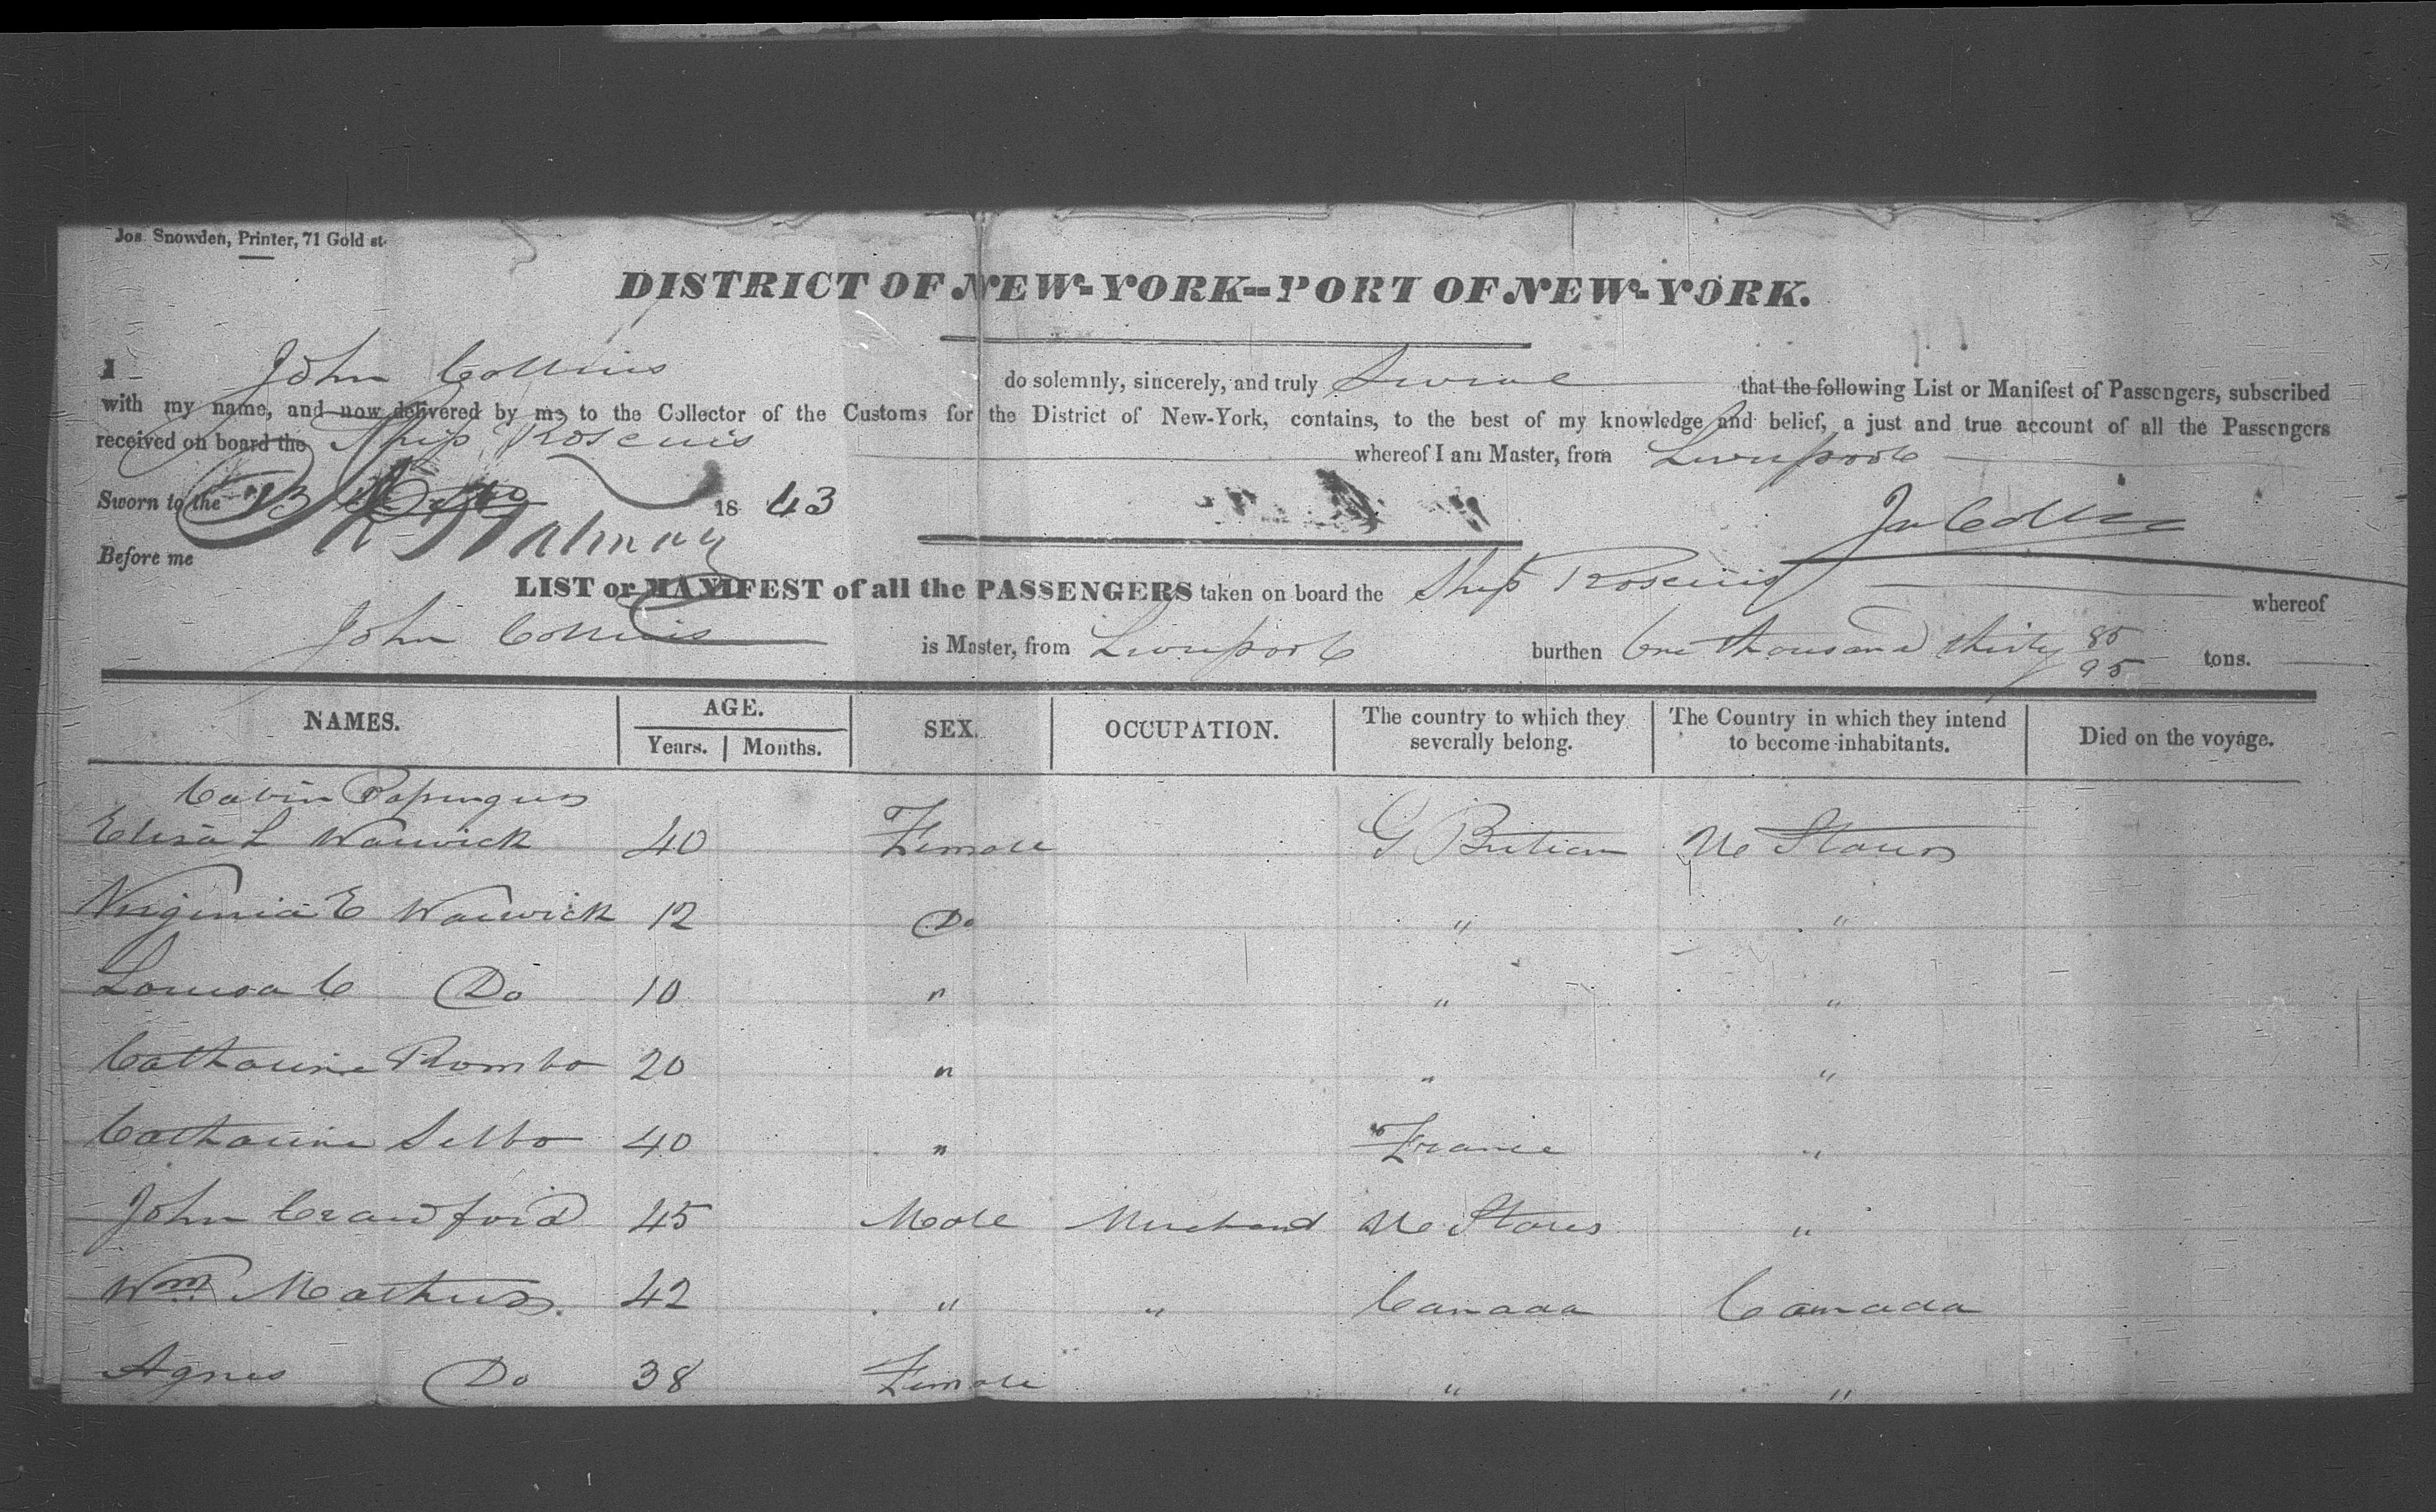 Jos. Snowden, Printer, 71 Gold st.
DISTRICT OF NEW-YORK--PORT OF NEW-YORK.
I John Collins do solemnly, sincerely, and truly Swear that the following List or Manifest of Passengers, subscribed
with my name, and now delivered by me to the Collector of the Customs for the District of New-York, contains, to the best of my knowledge and belief, a just and true account of all the Passengers
received on board the Ship Roscius whereof I am Master, from Liverpool
Sworn to the 13 1843
Jn Collins
Before me
LIST or MANIFEST of all the PASSENGERS taken on board the Ship Roscius whereof
John Collins is Master, from Liverpool burthen One thousand thirty 85/95 tons.
NAMES. AGE. Years. Months. SEX. OCCUPATION. The country to which they severally belong. The Country in which they intend to become inhabitants. Died on the voyage.
Cabin Passengers
Elisa L Warwick 40 Female G Britian U States
Virginia E Warwick 12 Do " "
Louisa C Do 10 " " "
Catharine Rombo 20 " " "
Catharine Selbo 40 " France "
John Crawford 45 Male Merchand U States "
Wm Mathews 42 " " Canada Canada
Agnes Do 38 Female " "